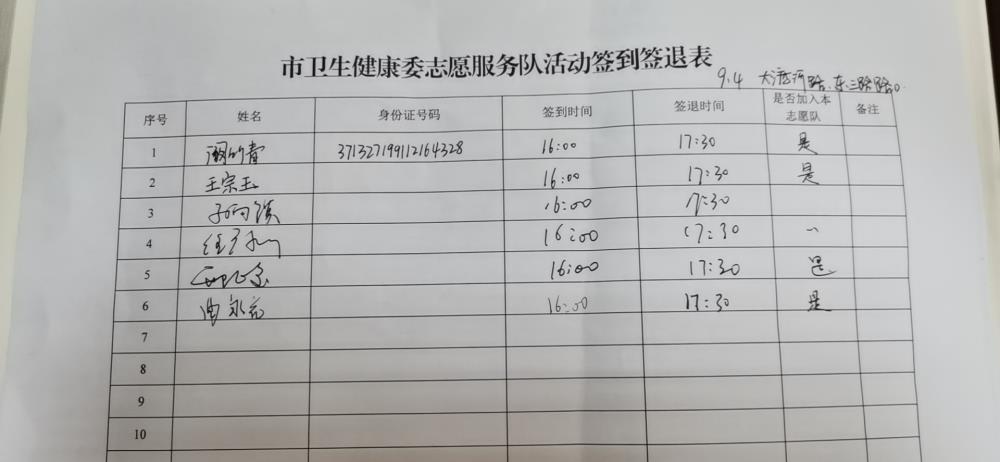 市卫生健康委志愿服务队活动签到签退表
9.4 大渡河路、东三路路口
序号 姓名 身份证号码 签到时间 签退时间 是否加入本志愿队 备注
1 371327199112164328 16:00 17:30 是
2 王宗玉 16:00 17:30 是
3 16:00 17:30
4 16:00 17:30
5 16:00 17:30 是
6 16:00 17:30 是
7
8
9
10